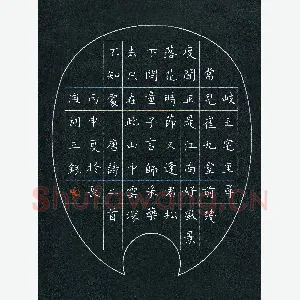 岐王宅里尋
常見崔九堂前幾
度聞正是江南好風景
落花時節又逢君松
下問童子言師采藥
去只在此山中雲深
不知處 唐詩二首
丙申夏於
Shufawang.CN